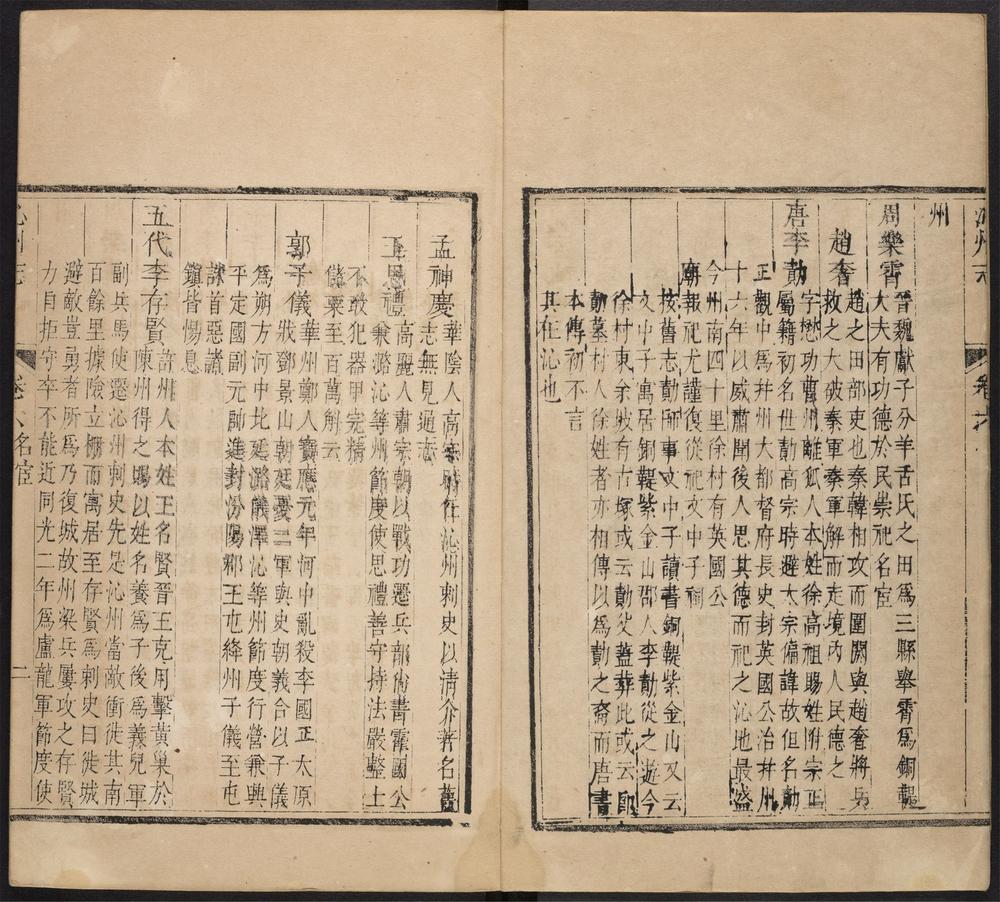 沁州志 卷六
州
周樂霄晉魏獻子分羊舌氏之田爲三縣舉霄爲銅鞮
大夫有功德於民崇祀名宦
趙奢趙之田部吏也秦韓相攻而圍閼與趙奢將兵
救之大破秦軍秦軍解而走境內人民德之
唐李勣字懋功曹州離狐人本姓徐高祖賜姓附宗正
屬籍初名世勣高宗時避太宗偏諱故但名勣
貞觀中爲并州大都督府長史封英國公治并州
十六年以威肅聞後人思其德而祀之沁地最盛
今州南四十里徐村有英國公
廟報祀尤謹復從祀文中子祠
按舊志勣師事文中子讀書銅鞮紫金山又云
文中子寓居銅鞮紫金山郡人李勣從之遊今
徐村東余坡有古塚或云勣父葢葬此或云即
勣墓村人徐姓者亦相傳以爲勣之裔而唐書
本傳初不言
其在沁也
孟神慶華陰人高宗時任沁州刺史以清介著名舊
志無見通志
王思禮高麗人肅宗朝以戰功遷兵部尚書霍國公
兼潞沁等州節度使思禮善守持法嚴整士
不敢犯器甲完精
儲粟至百萬斛云
郭子儀華州鄭人寶應元年河中亂殺李國正太原
戕鄧景山朝廷憂二軍與史朝義合以子儀
爲朔方河中北廷潞儀澤沁等州節度行營兼興
平定國副元帥進封汾陽郡王屯絳州子儀至屯
誅首惡諸
鎮皆惕息
五代李存賢許州人本姓王名賢晉王克用擊黃巢於
陳州得之賜以姓名養爲子後爲義兒軍
副兵馬使遷沁州刺史先是沁州當敵衝徙其南
百餘里據險立柵而寓居至存賢爲刺史曰徙城
避敵豈勇者所爲乃復城故州梁兵屢攻之存賢
力自拒守卒不能近同光二年爲盧龍軍節度使
沁州志 卷六名宦 二